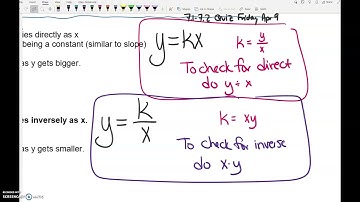 7.1-7.2 Quiz Friday Apr 9
ies directly as x
being a constant (similar to slope)
as y gets bigger.
y=kx
k = y/x
To check for direct
do y ÷ x
es inversely as x.
as y gets smaller.
y = k/x
k = xy
To check for inverse
do x·y